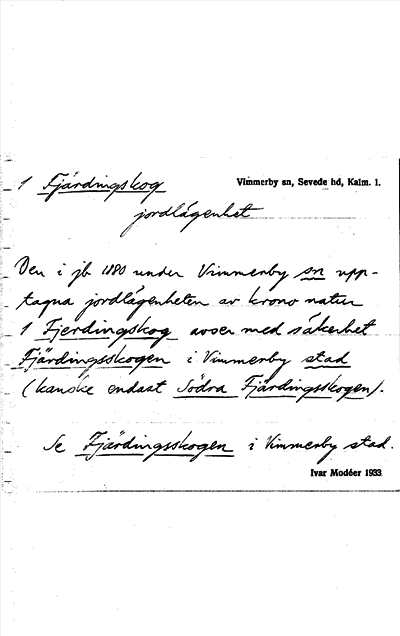 1 Fjärdingskog Vimmerby sn, Sevede hd, Kalm. l.
jordlägenhet
Den i jb 1880 under Vimmerby sn upp-
tagna jordlägenheten av krono natur
1 Fjerdingskog avser med säkerhet
Fjärdingsskogen i Vimmerby stad
(kanske endast Södra Fjärdingsskogen).
Se Fjärdingsskogen i Vimmerby stad.
Ivar Modéer 1933